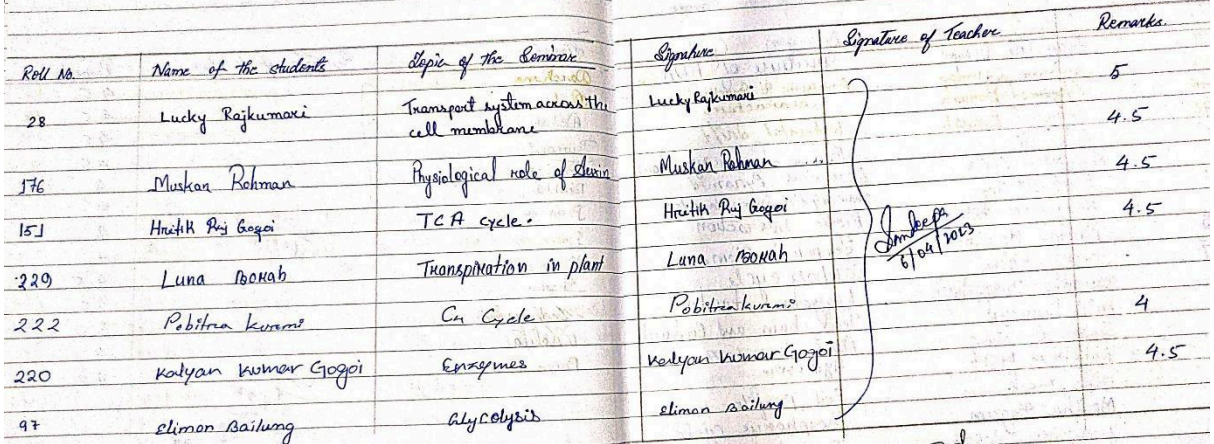 Roll No. Name of the students Topic of the Seminar Signature Signature of Teacher Remarks.
28 Lucky Rajkumari Transport system across the cell membrane Lucky Rajkumari 5
176 Muskan Rohman Physiological role of Auxin Muskan Rohman 4.5
151 Hritik Raj Gogoi TCA cycle. Hritik Raj Gogoi 4.5
229 Luna Borah Transpiration in plant Luna Borah 4.5
222 Pobitra kurmi C4 Cycle Pobitra kurmi
220 Kalyan Kumar Gogoi Enzymes Kalyan Kumar Gogoi 4
97 Elimon Bailung Glycolysis Elimon Bailung 4.5
6/04/2023